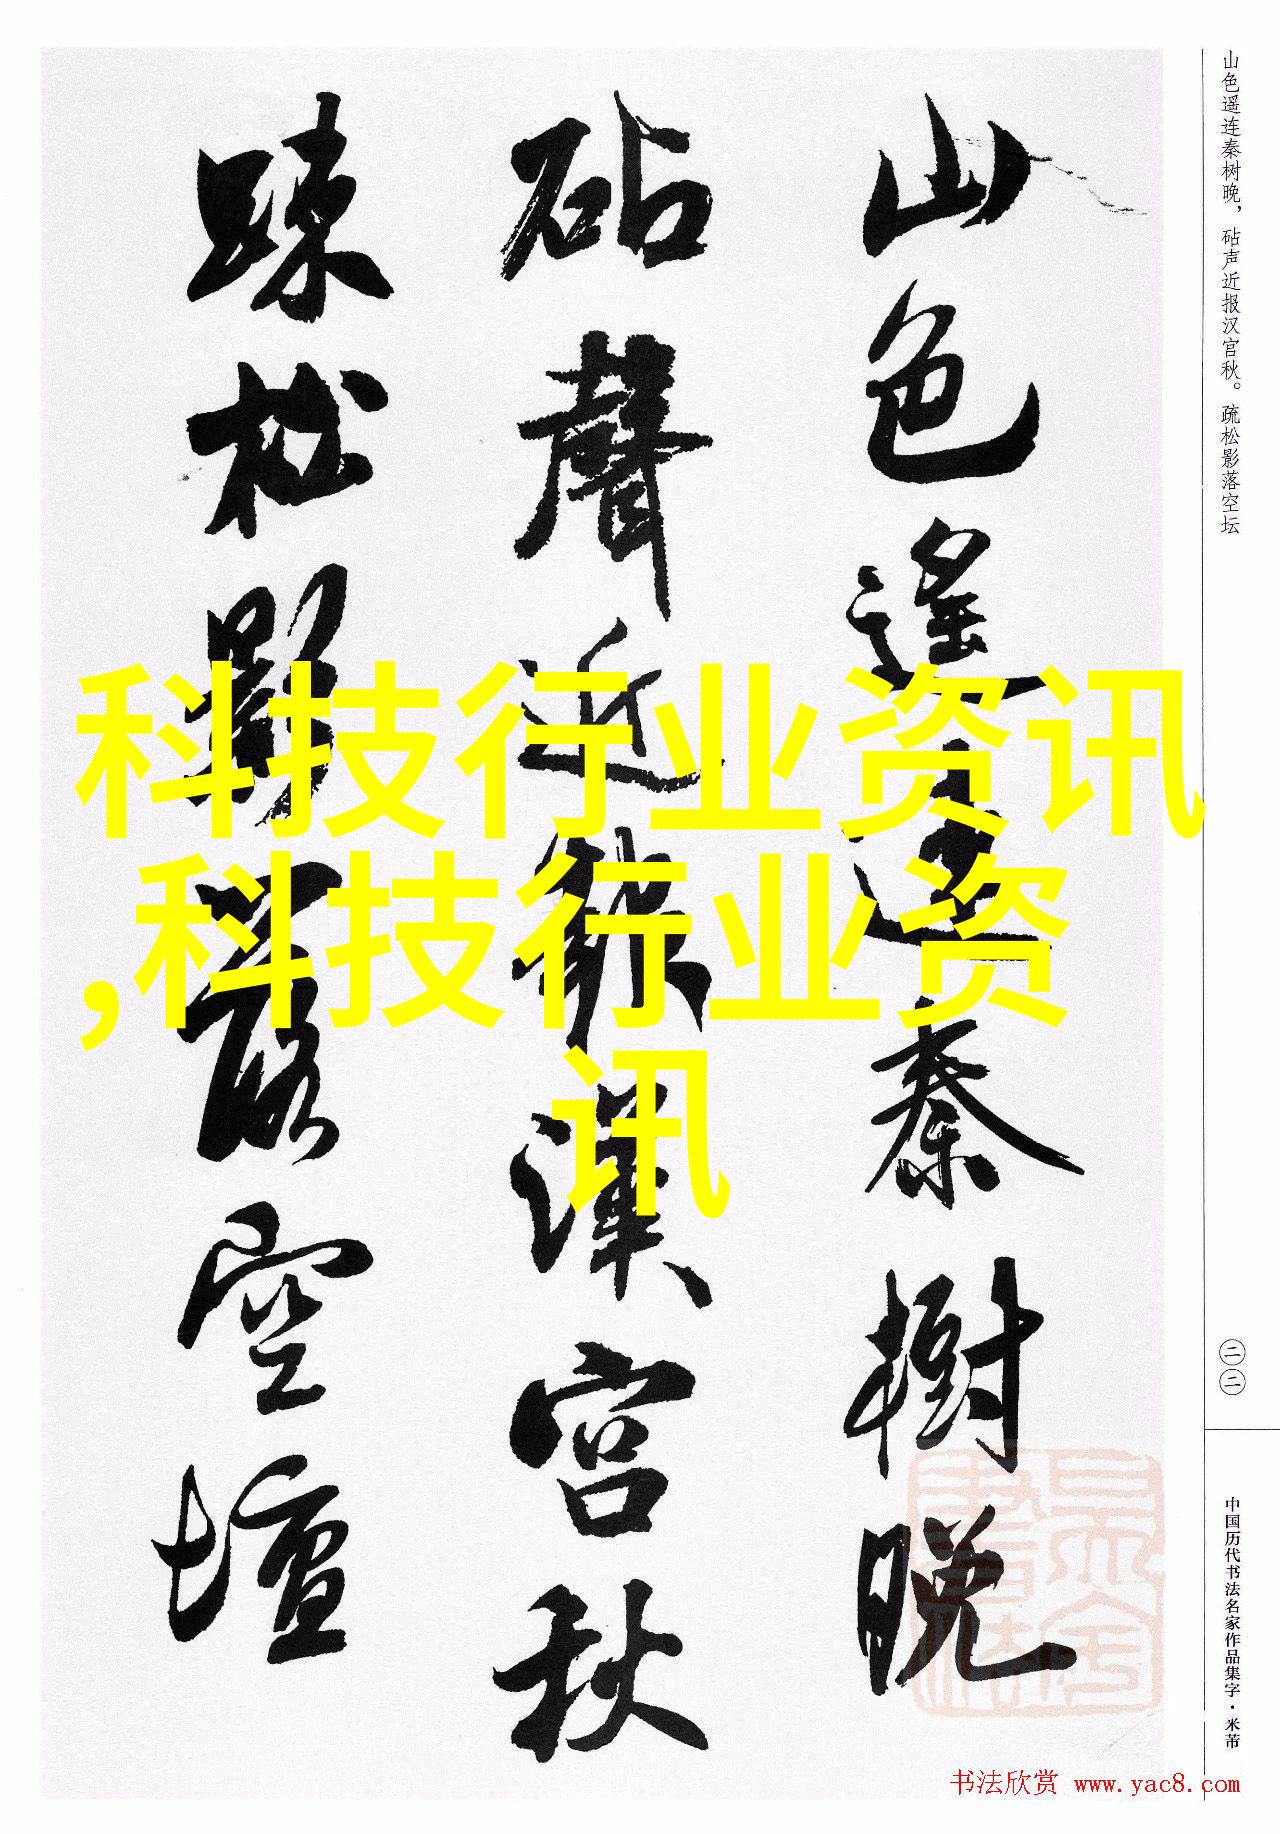 山色遥连秦树晚，砧声近报汉宫秋。疏松影落空坛
二二
中国历代书法名家作品集字·米芾
山色遥连秦樹晚
砧聲近報漢宮秋
踈松影落空壇
科技行业资讯
,科技行业资
讯
书法欣赏 www.yac8.com